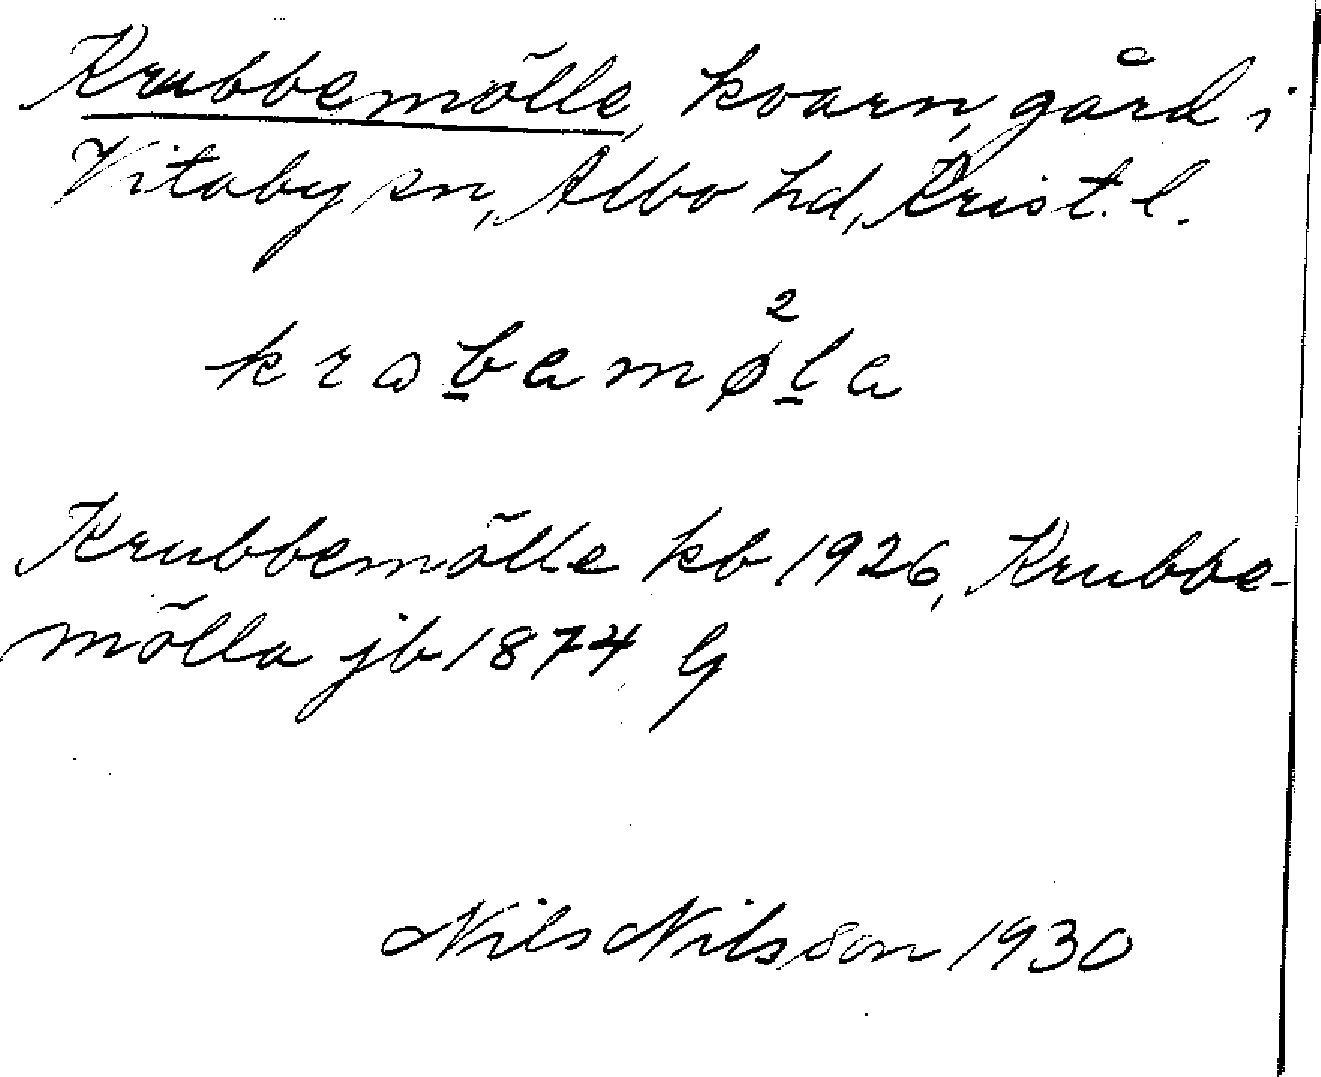 Krubbemölle, kvarn, gård i
Vitaby sn, Albo hd, Krist. l.
krabamø²la
Krubbemölle kb 1926, Krubbe-
mölla jb 1874 G
Nils Nilsson 1930